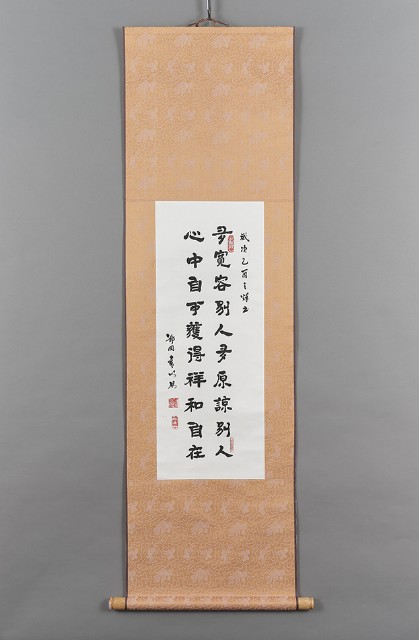 歲次乙酉之
多寬容別人多原諒別人
心中自可獲得祥和自在